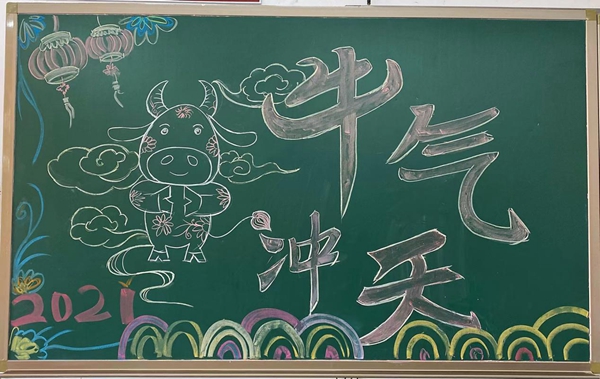 牛气
冲天
2021